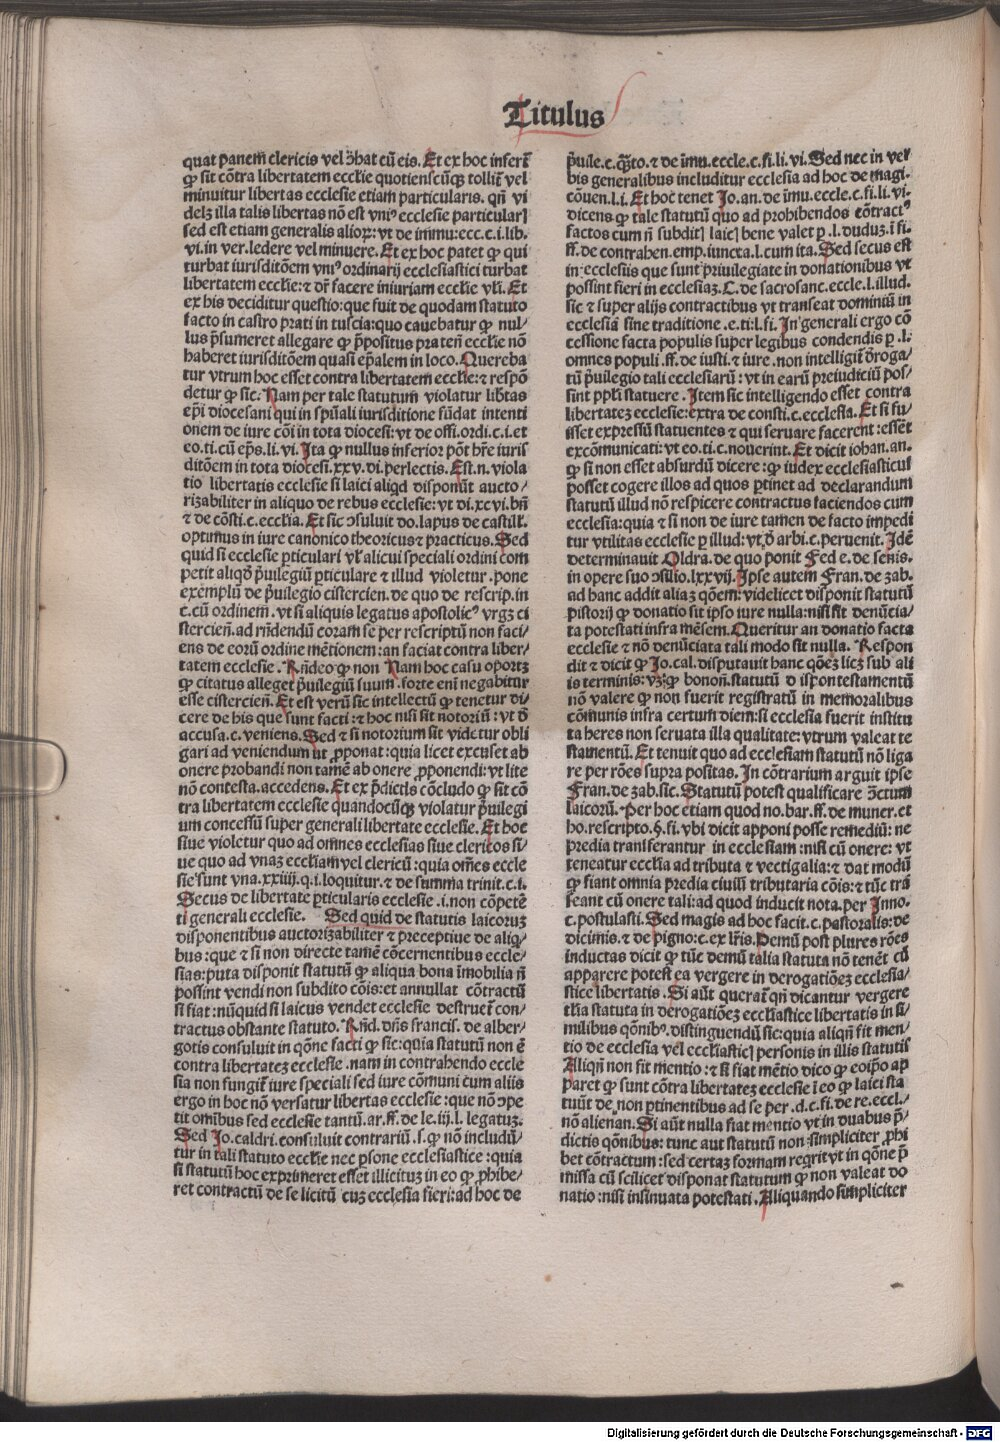 Titulus
quat panem clericis vel ɔ̄hat cū eis. Et ex hoc infert̄
ꝙ sit cōtra libertatem ecclie quotienscūqꝫ tollit̄ vel
minuitur libertas ecclesie etiam particularis. qn̄ vi
delꝫ illa talis libertas nō est vniꝰ ecclesie particularꝭ
sed est etiam generalis alioꝝ: vt de immu: ecc. c. i. lib.
vi. in ver. ledere vel minuere. Et ex hoc patet ꝙ qui
turbat iurisditōem vniꝰ ordinarij ecclesiastici turbat
libertatem ecclie: ⁊ dr̄ facere iniuriam ecclie vl̄i. Et
ex his deciditur questio: que fuit de quodam statuto
facto in castro prati in tuscia: quo cauebatur ꝙ nul⸗
lus p̄sumeret allegare ꝙ p̄positus praten̄ ecclie nō
haberet iurisditōem quasi ep̄alem in loco. Quereba
tur vtrum hoc esset contra libertatem ecclie: ⁊ respō
detur ꝙ sic: Nam per tale statutum violatur lib̄tas
ep̄i diocesani qui in sp̄uali iurisditione fūdat intenti
onem de iure cōi in tota diocesi: vt de offi. ordi. c. i. et
eo. ti. cū ep̄s. li. vi. Ita ꝙ nullus inferior pōt hr̄e iuris
ditōem in tota diocesi. xxv. di. perlectis. Est. n. viola
tio libertatis ecclesie si laici aliqd disponūt aucto⸗
rizabiliter in aliquo de rebus ecclesie: vt di. xcvi. bn̄
⁊ de cōsti. c. ecclia. Et sic ɔsuluit do. lapus de castill̄.
optimus in iure canonico theoricus ⁊ practicus. Sed
quid si ecclesie ꝑticulari vl̄ alicui speciali ordini com
petit aliqd̄ p̄uilegiū ꝑticulare ⁊ illud violetur. pone
exemplū de p̄uilegio cistercien. de quo de rescrip. in
c. cū ordinem. vt si aliquis legatus apostolicꝰ vrgꝫ ci
stercien̄. ad rn̄dendū coram se per rescriptū non faci⸗
ens de eorū ordine mētionem: an faciat contra liber⸗
tatem ecclesie. Rn̄deo ꝙ non Nam hoc casu oportꝫ
ꝙ citatus alleget p̄uilegiū suum. forte eni negabitur
esse cistercien̄. Et est verū sic intellectū ꝙ tenetur di⸗
cere de his que sunt facti: ⁊ hoc nisi sit notoriū: vt d̄
accusa. c. veniens. Sed ⁊ si notorium sit videtur obli
gari ad veniendum ut ꝓponat: quia licet excuset ab
onere probandi non tamē ab onere ꝓponendi: vt lite
nō contesta. accedens. Et ex p̄dictis cōcludo ꝙ sit cō
tra libertatem ecclesie quandocūqꝫ violatur p̄uilegi
um concessū super generali libertate ecclesie. Et hoc
siue violetur quo ad omnes ecclesias siue clericos si⸗
ue quo ad vnaꝫ eccliam vel clericū: quia om̄es eccle
sie sunt vna. xxiiij. q. i. loquitur. ⁊ de summa trinit. c. i.
Secus de libertate ꝑticularis ecclesie. i. non cōpetē
ti generali ecclesie. Sed quid de statutis laicoruꝫ
disponentibus auctorizabiliter ⁊ preceptiue de aliq⸗
bus: que ⁊ si non directe tamē cōcernentibus eccle⸗
sias: puta disponit statutū ꝙ aliqua bona īmobilia n̄
possint vendi non subdito cōis: et annullat cōtractū
si fiat: nūquid si laicus vendet ecclesie destruet̄ con⸗
tractus obstante statuto. Rn̄d. dn̄s francis. de alber⸗
gotis consuluit in qōne facti ꝙ sic: quia statutū non ē
contra libertateꝫ ecclesie. nam in contrahendo eccle
sia non fungit̄ iure speciali sed iure cōmuni cum aliis
ergo in hoc nō versatur libertas ecclesie: que nō ɔpe
tit omībus sed ecclesie tantū. ar. ff. de le. iij. l. legatuꝫ.
Sed Jo. caldri. consuluit contrariū. s. ꝙ nō includū⸗
tur in tali statuto ecclie nec ꝑsone ecclesiastice: quia
si statutū hoc exprimeret esset illicituꝫ in eo ꝙ ꝓhibe⸗
ret contractū de se licitū cuꝫ ecclesia fieri: ad hoc de
p̄uile. c. qꝫto. ⁊ de īmu. eccle. c. fi. li. vi. Sed nec in ver
bis generalibus includitur ecclesia ad hoc de magi.
cōuen. l. i. Et hoc tenet Jo. an. de īmu. eccle. c. fi. li. vi.
dicens ꝙ tale statutū quo ad prohibendos cōtractꝰ
factos cum n̄ subditꝭ laicꝭ bene valet ꝑ l. duduꝫ. ī fi.
ff. de contrahen. emp. iuncta. l. cum ita. Sed secus est
in ecclesiis que sunt priuilegiate in donationibus vt
possint fieri in ecclesiaꝫ. C. de sacrosanc. eccle. l. illud.
sic ⁊ super alijs contractibus vt transeat dominiū in
ecclesiā sine traditione. e. ti: l. fi. In generali ergo cō
cessione facta populis super legibus condendis ꝑ. l.
omnes populi. ff. de iusti. ⁊ iure. non intelligit̄ d̄roga⸗
tū p̄uilegio tali ecclesiarū: vt in earū preiudiciū pos⸗
sint pp̄li statuere. Item sic intelligendo esset contra
libertateꝫ ecclesie: extra de consti. c. ecclesia. Et si fu⸗
isset expressū statuentes ⁊ qui seruare facerent: essent
excōmunicati: vt eo. ti. c. nouerint. Et dicit iohan. an.
ꝙ si non esset absurdū dicere: ꝙ iudex ecclesiasticus
posset cogere illos ad quos ꝑtinet ad declarandum
statutū illud nō respicere contractus faciendos cum
ecclesia: quia ⁊ si non de iure tamen de facto impedi
tur vtilitas ecclesie ꝑ illud: vt d̄ arbi. c. peruenit. Idē
determinauit Oldra. de quo ponit Fed e. de senis.
in opere suo ɔsilio. lxxvij. Ipse autem Fran. de zab.
ad hanc addit aliaꝫ qōem: videlicet disponit statutū
pistorij ꝙ donatio sit ipso iure nulla: nisi fit denūcia⸗
ta potestati infra mēsem. Queritur an donatio facta
ecclesie ⁊ nō denūciata tali modo sit nulla. Respon
dit ⁊ dicit ꝙ Jo. cal. disputauit hanc qōeꝫ licꝫ sub ali
is terminis: vꝫ. ꝙ bonon̄. statutū d ispon testamentū
nō valere ꝙ non fuerit registratū in memoralibus
cōmunis infra certum diem: si ecclesia fuerit institu
ta heres non seruata illa qualitate: vtrum valeat te
stamentū. Et tenuit quo ad ecclesiam statutū nō liga
re per rōes supra positas. In cōtrarium arguit ipse
Fran. de zab. sic. Statutū potest qualificare ɔ̄ctum
laicorū. Per hoc etiam quod no. bar. ff. de muner. et
ho. rescripto. §. fi. vbi dicit apponi posse remediū: ne
predia transferantur in ecclesiam: nisi cū onere: vt
teneatur ecclia ad tributa ⁊ vectigalia: ⁊ dat modū
ꝙ fiant omnia predia ciuiū tributaria cōis: ⁊ tūc trā
seant cū onere tali: ad quod inducit nota. per Inno.
c. postulasti. Sed magis ad hoc facit. c. pastoralis: de
dicimis. ⁊ de pigno: c. ex lr̄is. Demū post plures rōes
inductas dicit ꝙ tūc demū talia statuta nō tenēt cū
apparere potest ea vergere in derogatiōeꝫ ecclesia⸗
stice libertatis. Si aūt querat̄ qn̄ dicantur vergere
talia statuta in derogatiōeꝫ eccliastice libertatis in si⸗
milibus qōnibꝰ. distinguendū sic: quia aliqn̄ fit men⸗
tio de ecclesia vel eccliasticꝭ personis in illis statutis
Aliqn̄ non fit mentio: ⁊ si fiat mētio dico ꝙ eoip̄o ap
paret ꝙ sunt cōtra libertateꝫ ecclesie ī eo ꝙ laici sta
tuūt de non ꝑtinentibus ad se per. d. c. fi. de re. eccl.
nō alienan. Si aūt nulla fiat mentio vt in duabus p̄⸗
dictis qōnibus: tunc aut statutū non simpliciter ꝓhi
bet cōtractum: sed certaꝫ formam reqrit vt in qōne p̄
missa cū scilicet disponat statutum ꝙ non valeat do
natio: nisi insinuata potestati. Aliquando simpliciter
Digitalisierung gefördert durch die Deutsche Forschungsgemeinschaft - DFG